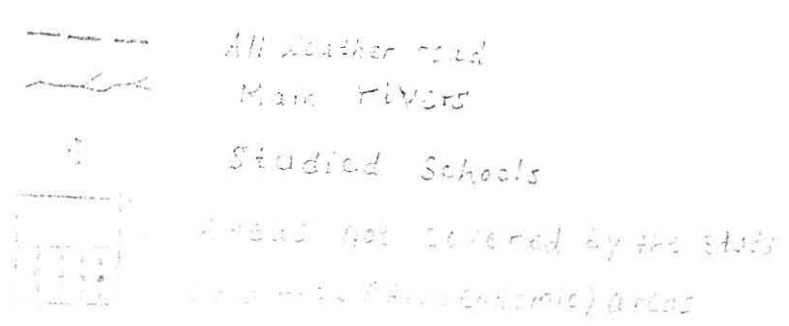 All Weather road
Main rivers
Studied Schools
Areas not covered by the study
areas